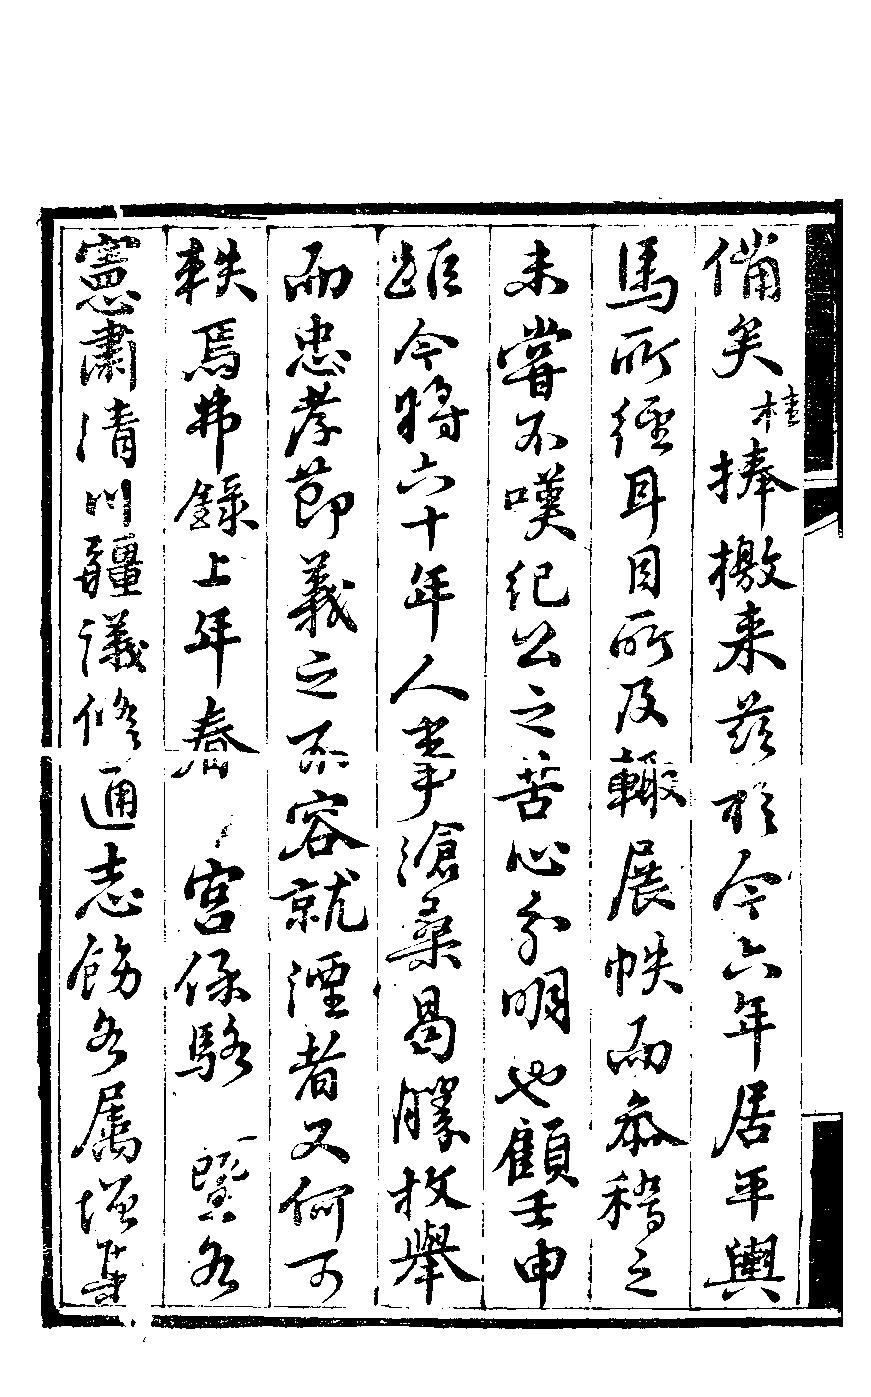 備矣桂捧檄来茲於今六年居平輿
馬所經耳目所及輙展帙而叅稽之
未嘗不嘆紀公之苦心分明也顧壬申
距今將六十年人事滄桑曷勝枚舉
而忠孝節義之不容就湮者又何可
軼焉弗錄上年春宮保駱暨各
憲肅清川疆議修通志飭各属增集